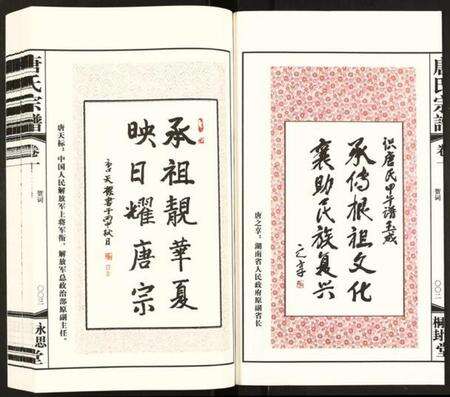 唐氏宗譜
卷一
贺词
〇〇二
桐封堂
识唐氏甲午谱玉成
承传根祖文化
襄助民族复兴
之享
唐之享:湖南省人民政府原副省长
承祖靓华夏
映日耀唐宗
唐天标:中国人民解放军上将军衔,解放军总政治部原副主任。
唐氏宗譜
卷一
贺词
〇〇三
永思堂